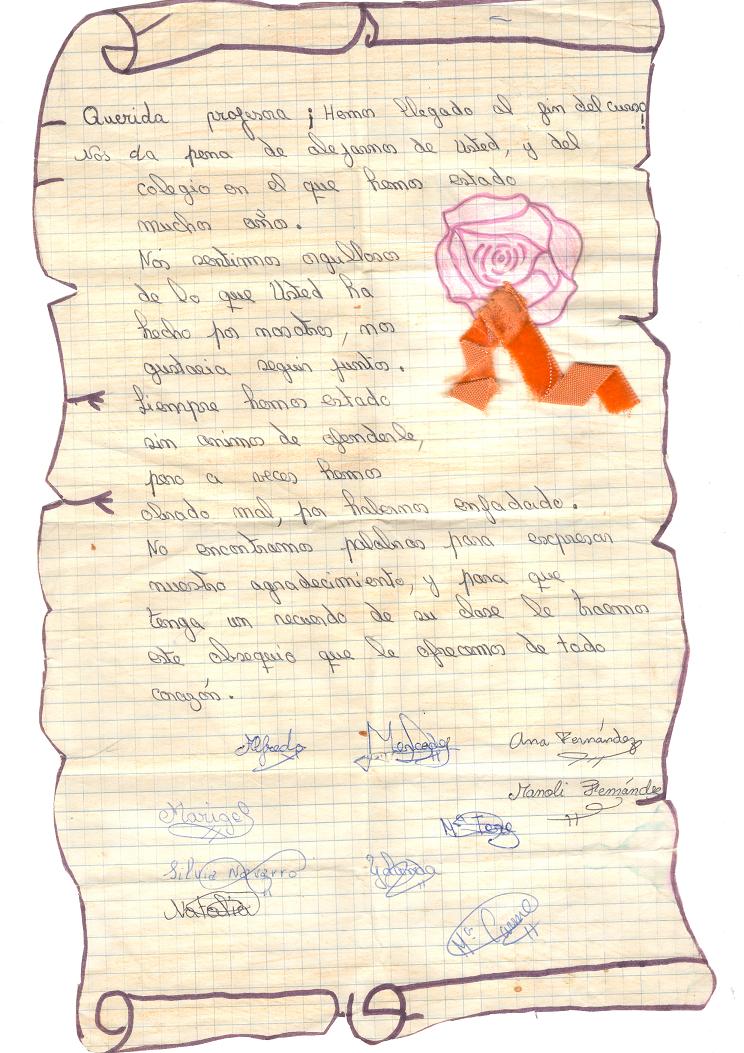 Querida profesora ¡Hemos llegado al fin del curso!
Nos da pena de alejarnos de Usted, y del
colegio en el que hemos estado
muchos años.
Nos sentimos orgullosos
de lo que Usted ha
hecho por nosotros, nos
gustaria seguir juntos.
Siempre hemos estado
sin animos de ofenderle,
pero a veces hemos
obrado mal, por habernos enfadado.
No encontramos palabras para expresar
nuestro agradecimiento, y para que
tenga un recuerdo de su clase le traemos
este obsequio que le ofrecemos de todo
corazón.
Alfredo Mercedes Ana Fernández
Manoli Fernández
Marigel
Mª Tere
Silvia Navarro Yolanda
Natalia
Mª Carmen